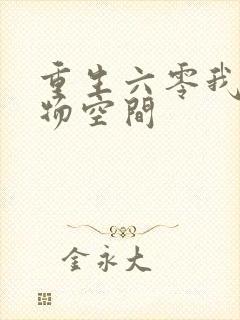 重生六零我
物空間
金永大